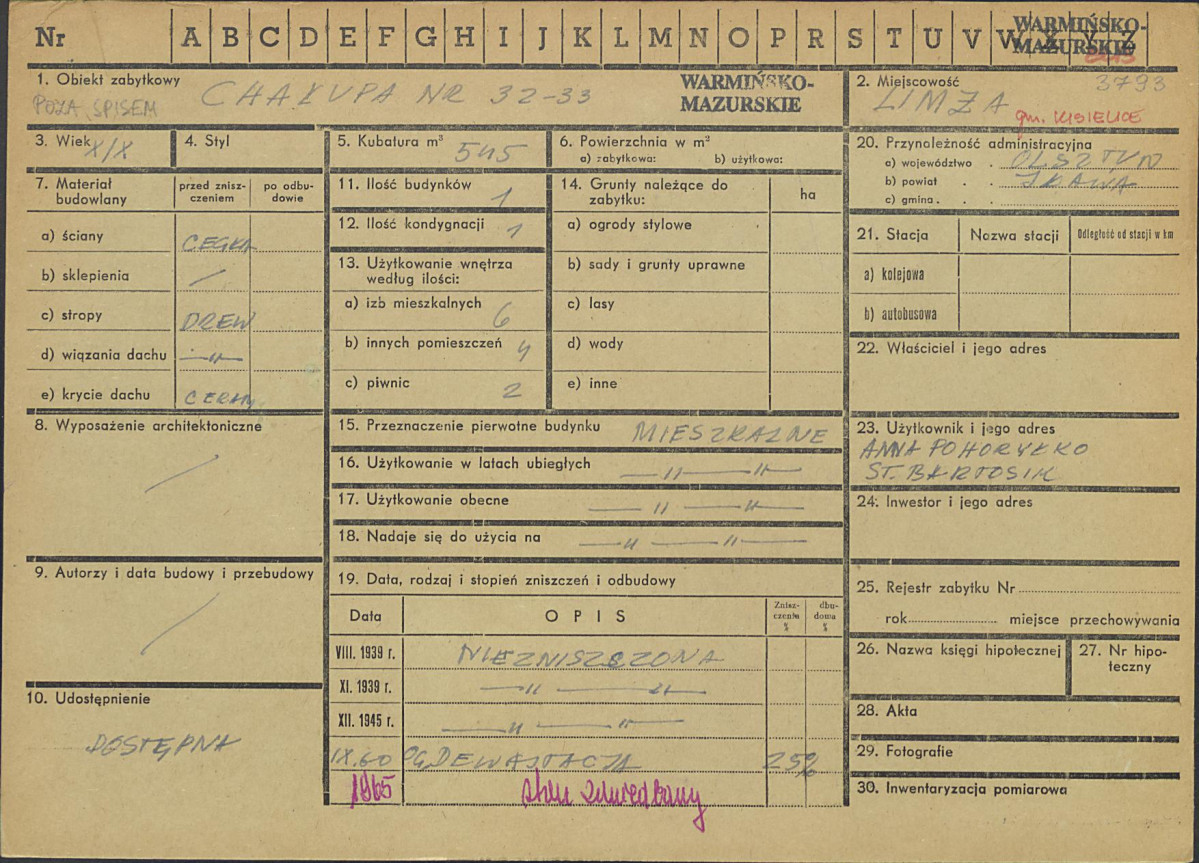 Nr A B C D E F G H I J K L M N O P R S T U V W X Y Z
WARMIŃSKO-
MAZURSKIE
1. Obiekt zabytkowy
POZA SPISEM
CHAŁUPA NR 32-33
WARMIŃSKO-
MAZURSKIE
2. Miejscowość
3793
LIMŻA
gm. KISIELICE
3. Wiek X/X
4. Styl
5. Kubatura m³ 545
6. Powierzchnia w m²
a) zabytkowa: b) użytkowa:
7. Materiał
budowlany
przed znisz-
czeniem
po odbu-
dowie
a) ściany CEGŁA
b) sklepienia /
c) stropy DREW
d) wiązania dachu —"—
e) krycie dachu CERAM
8. Wyposażenie architektoniczne
/
9. Autorzy i data budowy i przebudowy
/
10. Udostępnienie
DOSTĘPNA
11. Ilość budynków 1
12. Ilość kondygnacji 1
13. Użytkowanie wnętrza
według ilości:
a) izb mieszkalnych 6
b) innych pomieszczeń 4
c) piwnic 2
14. Grunty należące do
zabytku:
ha
a) ogrody stylowe
b) sady i grunty uprawne
c) lasy
d) wody
e) inne
15. Przeznaczenie pierwotne budynku MIESZKALNE
16. Użytkowanie w latach ubiegłych —"— —"—
17. Użytkowanie obecne —"— —"—
18. Nadaje się do użycia na —"— —"—
19. Data, rodzaj i stopień zniszczeń i odbudowy
Data OPIS
Znisz-
czenie
%
dbu-
dowa
%
VIII. 1939 r. NIEZNISZCZONA
XI. 1939 r. —"— —"—
XII. 1945 r. —"— —"—
IX.60 DEWASTACJA 25%
1965 stan zaniedbany
20. Przynależność administracyjna
a) województwo . OLSZTYN
b) powiat . . IŁAWA
c) gmina . . .
21. Stacja Nazwa stacji Odległość od stacji w km
a) kolejowa
b) autobusowa
22. Właściciel i jego adres
23. Użytkownik i jego adres
ANNA POHORYŁKO
ST. BARTOSIK
24. Inwestor i jego adres
25. Rejestr zabytku Nr
rok miejsce przechowywania
26. Nazwa księgi hipotecznej
27. Nr hipo-
teczny
28. Akta
29. Fotografie
30. Inwentaryzacja pomiarowa